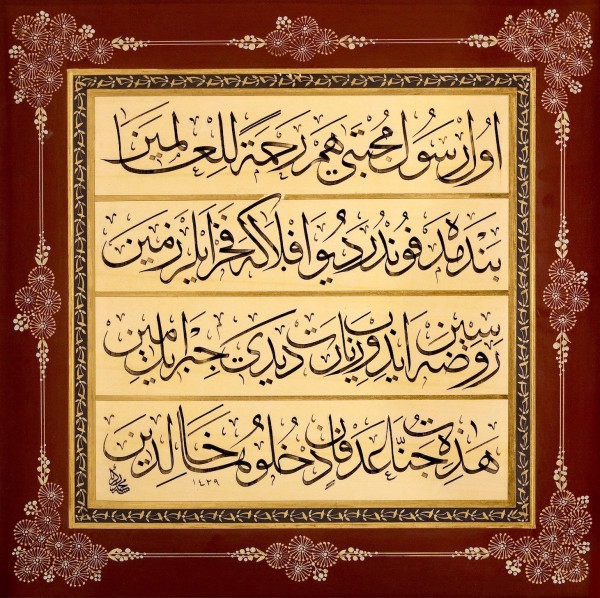 اول رسول مجتبى هم رحمة للعالمين
بنده مدفوندر ديو افلاكه فخر ايلر زمين
روضه سين ايدوب زيارت ديدى جبرايل امين
هٰذِهِ جنات عدن فادخلوها خالدين
١٤٢٩